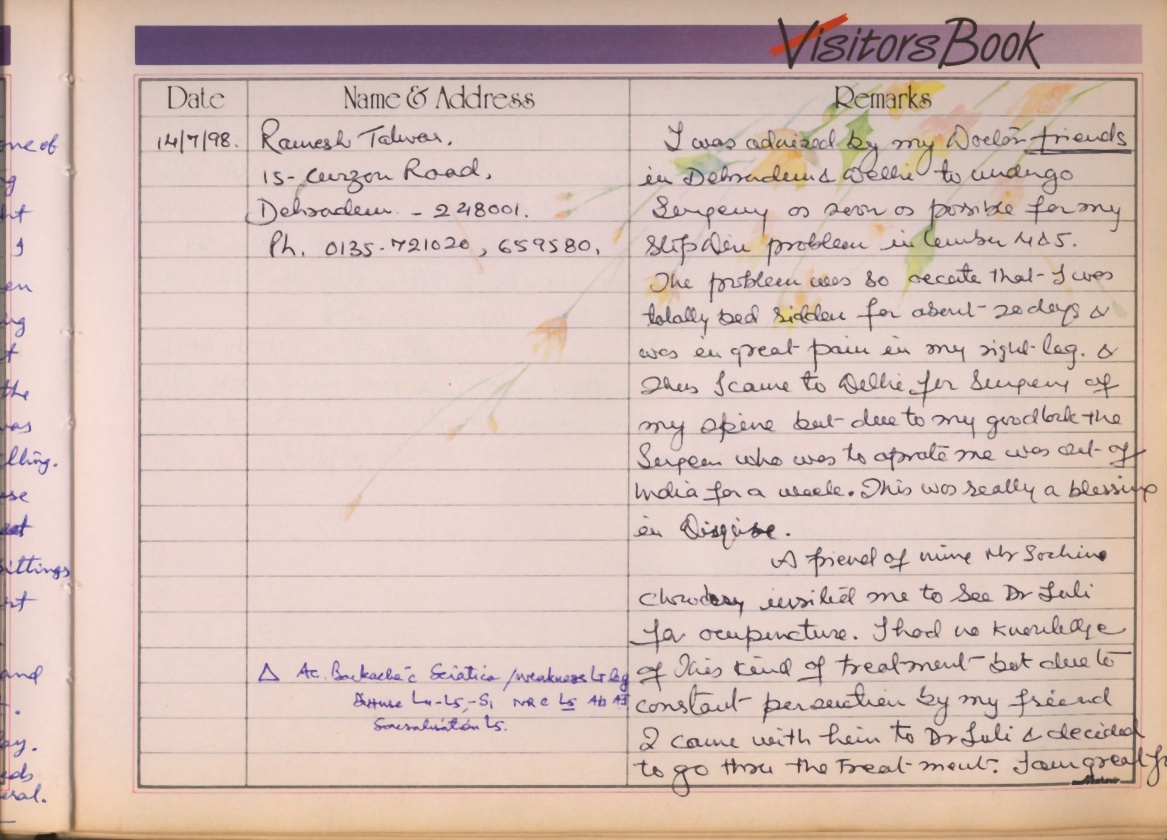 Visitors Book
Date Name & Address Remarks
14/7/98. Ramesh Talwar.
15- Curzon Road,
Dehradun - 248001.
Ph. 0135-721020, 659580.
I was advized by my Doctor friends
in Dehradun & Delhi to undergo
Surgery as soon as possible for my
Slip Disc problem in Lumber 4&5.
The problem was so accute that I was
totally bed sidden for about 20 days &
was in great pain in my right leg. &
Thus I came to Delhi for Surgery of
my spine but due to my goodluck the
Surgeon who was to oprate me was out of
India for a week. This was really a blessing
in Disguise.
A friend of mine Mr
Chowdery invited me to See Dr Luli
for acupuncture. I had no knowledge
of This kind of treatment but due to
constant persuation by my friend
I came with him to Dr Luli & decided
to go thru the Treat-ment. I am great
Δ Ac. Backache c̄ Sciatica / weakness Lt leg
Diffuse L4-L5,-S1
Sacralisation L5.
one of
ng
ht
I
en
ng
t
the
was
lling.
use
sittings
and
ay.
eral.